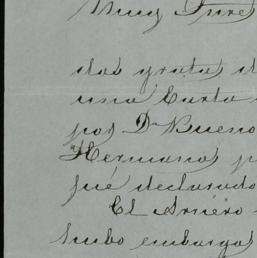 Muy
dos gratas d
una Carta
por Dn Bueno
Hermanos p
fué declarado
El Arriero
hubo embargos